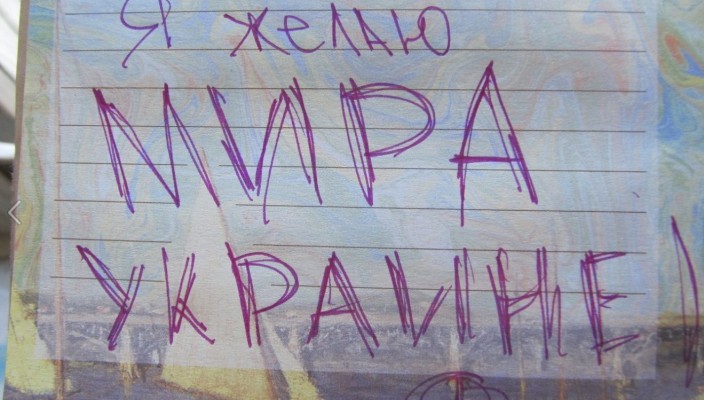 Я желаю
МИРА
УКРАИНЕ!